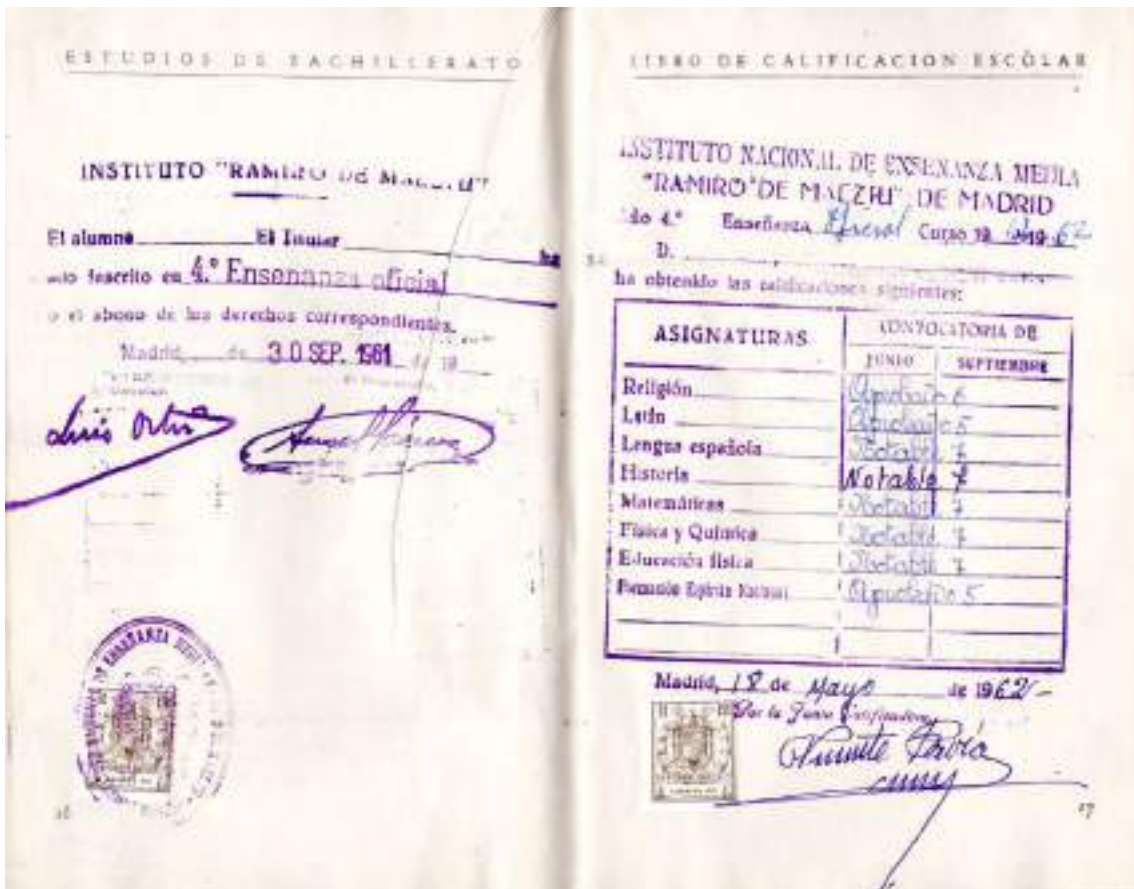 ESTUDIOS DE BACHILLERATO
INSTITUTO "RAMIRO DE MAEZTU"
El alumno El Titular ha
inscrito en 4.º Ensenanza oficial
el abono de los derechos correspondientes.
Madrid, de 30 SEP. 1961 de 19
Luis Ortiz
ENSEÑANZA
16
LIBRO DE CALIFICACION ESCOLAR
INSTITUTO NACIONAL DE ENSENANZA MEDIA
"RAMIRO DE MAEZTU" DE MADRID
do 4.º Enseñanza Oficial Curso 19 19 62
D.
ha obtenido las calificaciones siguientes:
ASIGNATURAS CONVOCATORIA DE
JUNIO SEPTIEMBRE
Religión Aprobado 6
Latín Aprobado 5
Lengua española Notable 7
Historia Notable 7
Matemáticas Notable 7
Física y Química Notable 7
Educación física Notable 7
Formación Espíritu Nacional Aprobado 5
Madrid, 18 de Mayo de 1962
Por la Junta Calificadora,
Vicente
17